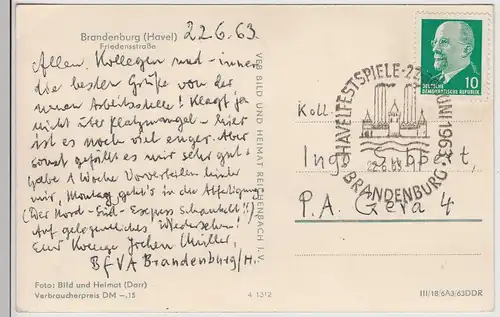 Brandenburg (Havel)
Friedensstraße
22.6.63
Allen Kollegen und -innen
die besten Grüße von der
neuen Arbeitsstelle! Klagt ja
nicht über Platzmangel - hier
ist es noch viel enger. Aber
sonst gefällt es mir sehr gut.
Habe 1 Woche Vorverteilen hinter
mir, Montag geht's in die Abfertigung
(Der Nord-Süd-Express schaukelt!!).
Auf gelegentliches Wiedersehen!
Euer Kollege Jochen Müller,
BfVA Brandenburg/H.
Foto: Bild und Heimat (Darr)
Verbraucherpreis DM -.15
VEB BILD UND HEIMAT REICHENBACH I. V.
4 1312
10
DEUTSCHE
DEMOKRATISCHE REPUBLIK
HAVELFESTSPIELE · 22. JUNI 1963
22.6.63
BRANDENBURG
Koll.
Ingo
P.A. Gera 4
III/18/6 A3/63 DDR